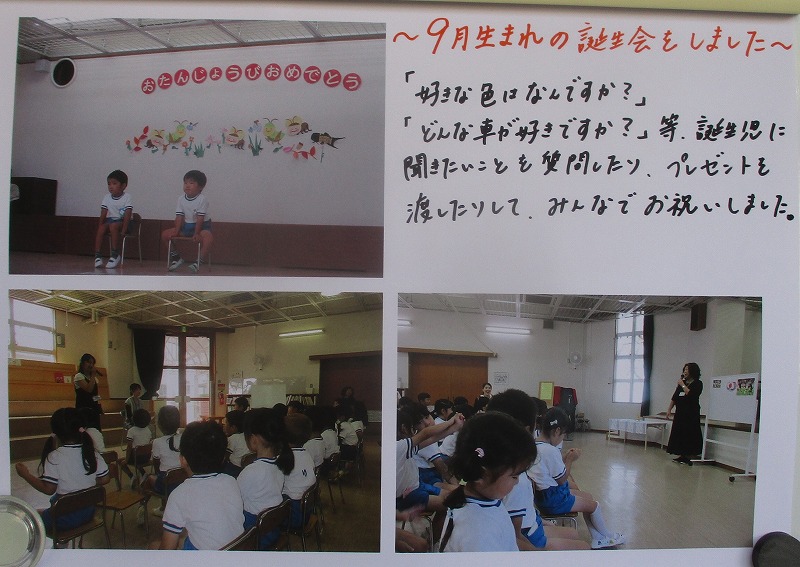 おたんじょうびおめでとう
～9月生まれの誕生会をしました～
「好きな色はなんですか？」
「どんな車が好きですか？」等、誕生児に
聞きたいことを質問したり、プレゼントを
渡したりして、みんなでお祝いしました。